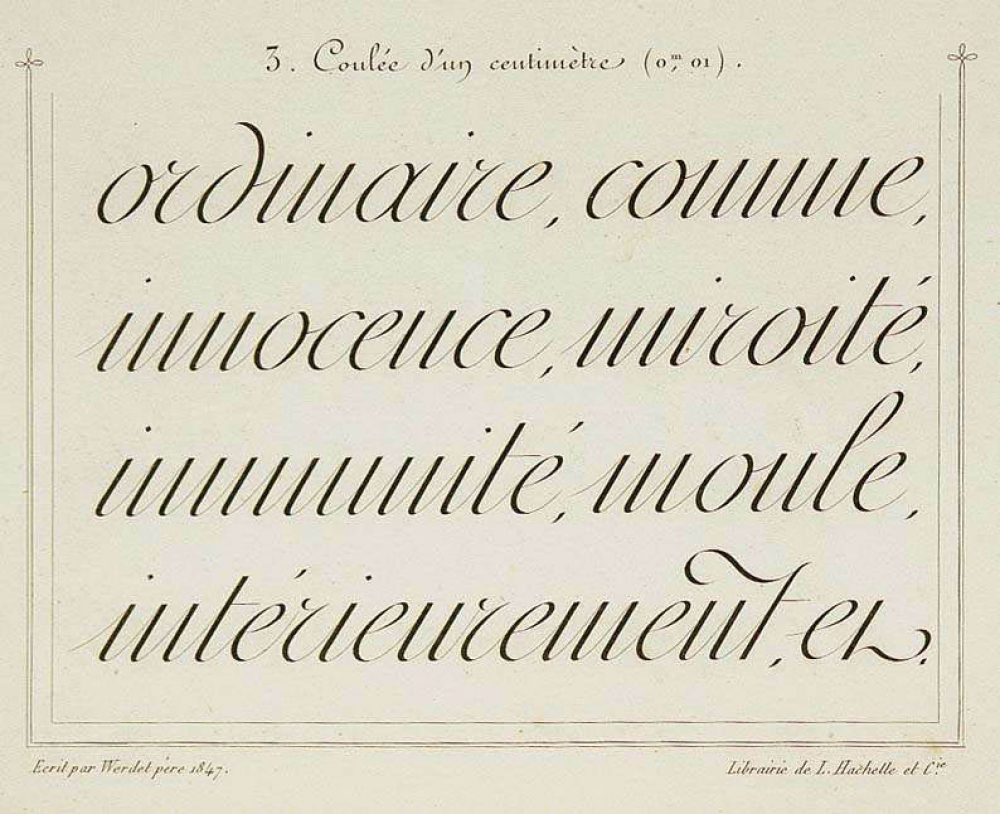 3. Coulée d'un centimètre (0,m 01).
ordinaire, comme,
innocence, miroité,
immunité, moule,
intérieurement, et.
Ecrit par Werdet père 1847.
Librairie de L. Hachette et C.ie